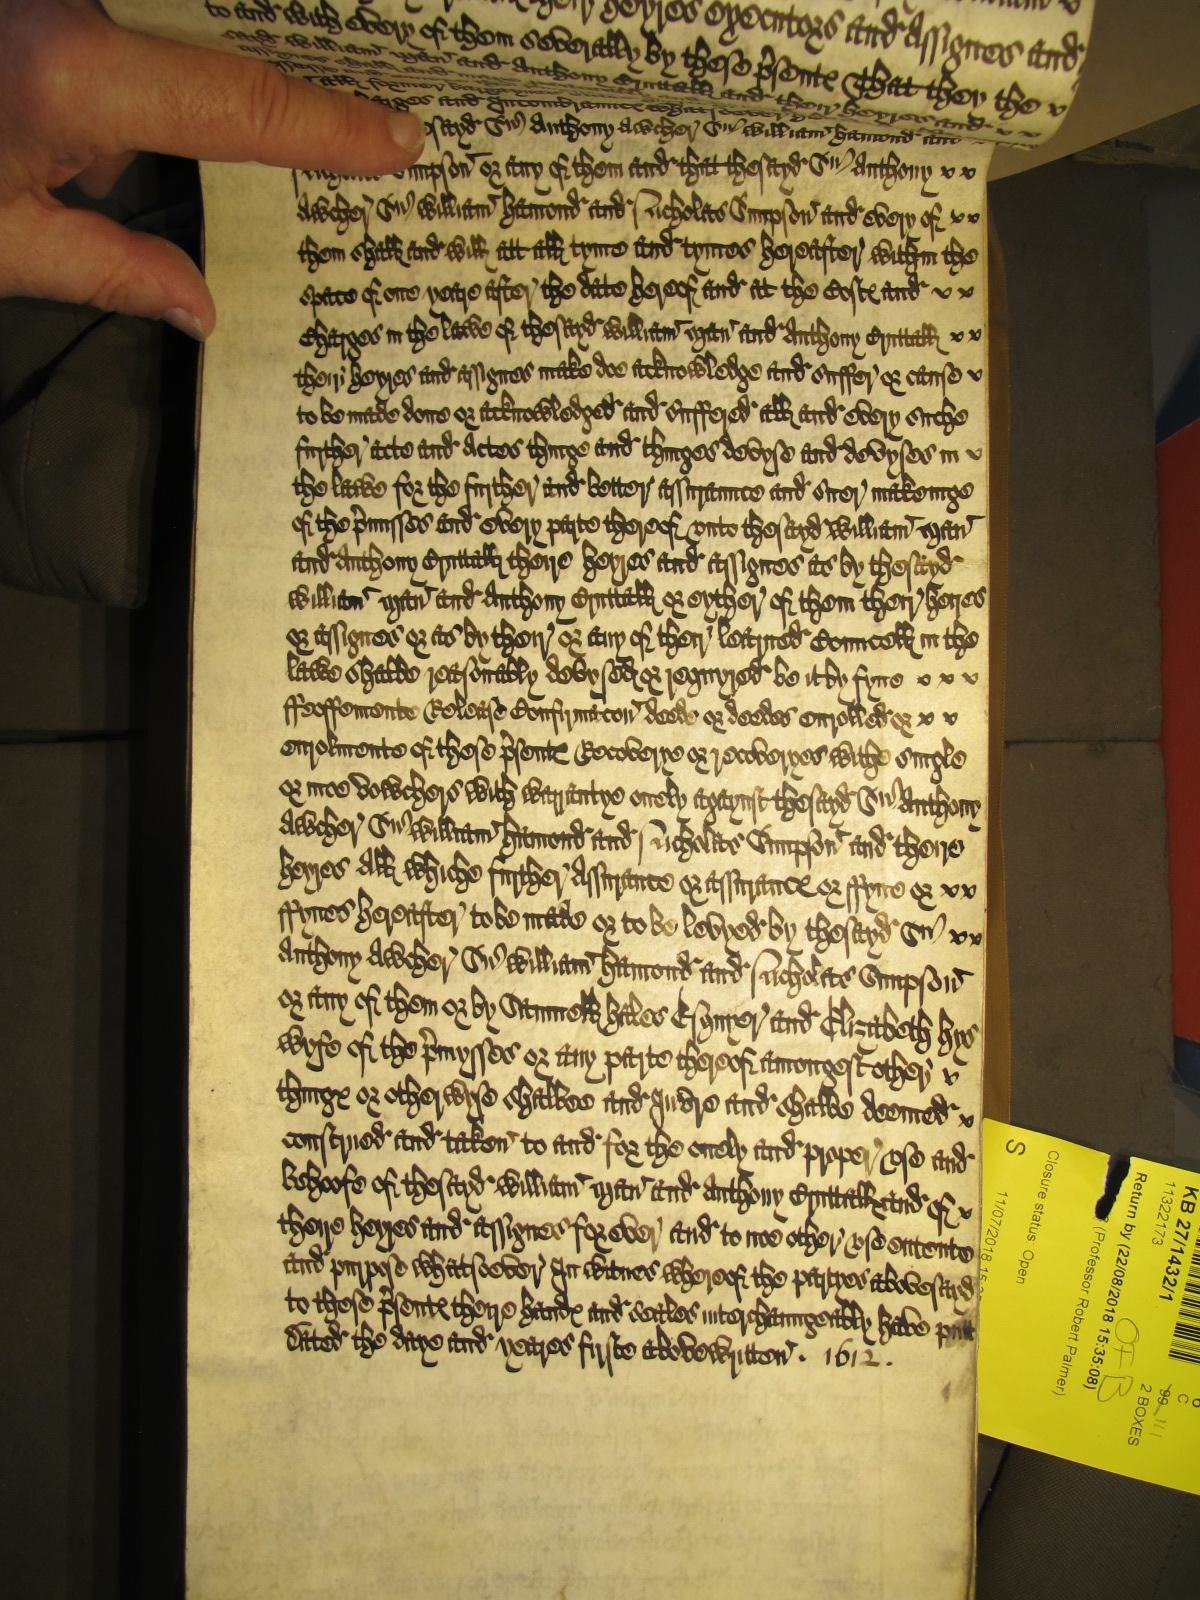 heyres executors and Assignes and
to and with every of them severally by these p̃sentℯ That they the v
William Man and Anthony
Anthony Awcher Sr William Hamond and
Simpson or any of them and that thesayd Sr Anthony v v
Awcher Sr William Hamond and Nicholas Simpson and every of v v
them shall and will att all tyme and tymes hereafter within the
space of one yeare after the date hereof and at the Costℯ and v v
Charges in the lawe of thesayd William Man and Anthony v v
their heyres and assignes make doe acknowledge and suffer or cause v
to be made done or acknowledged and suffered all and every suche
further acte and Actes thinge and thinges devyse and devyses in v
the lawe for the further and better assuraunce and suer makeinge
of the p̃misses and every parte thereof vnto thesayd William Man
and Anthony theire heyres and assignes as by thesayd
William Man and Anthony or eyther of them their heires
or assignes or as by their or any of their learned Councell in the
lawe shalbe reasonably devysed or requyred be it by fyne v v v
ffeoffemente Release Confirmacon deede or deedes enrolled or v v
enrolmente of these p̃sentℯ Recoverye or recoveryes withe single
or moe vowchers with warrantye onely against thesayd Sr Anthony
Awcher Sr William Hamond and Nicholas Simpson and theire
heyres All whiche further Assurance or assurancℯ or ffyne or v v
ffynes hereafter to be made or to be levyed by thesayd Sr v v
Anthony Awcher Sr William Hamond and Nicholas Simpson
or any of them or by Sammuell Hales Esquyer and Elizabeth hys
wyfe of the p̃mysses or any parte thereof amongest other v
thingℯ or otherwyse shalbee and Inure and shalbe deemed v
construed and taken to and for the onely and proper vse and
behoofe of thesayd William Man and Anthony and of v
theire heyres and assignes for ever and to noe other vse entente
and purpose whatsoever In witnes whereof the partyes abovesayd
to these p̃sentℯ theire handℯ and seales interchaungeably have putt
Dated the daye and yeares firste abovewritten . 1612 .
KB 27/1432/1
11322173
Return by (12/08/2018 15:35:08)
(Professor Robert Palmer)
Closure status Open
S
11/07/2018
C
99
2 BOXES